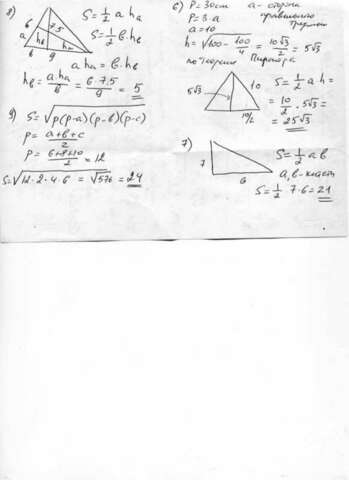 8)
6
7.5
a
hв
hа
в
9
S = 1/2 a hа
S = 1/2 в. hв
a hа = в. hв
hв = a.hа/в = 6·7.5/9 = 5
9) S = √p(p-a)(p-в)(p-c)
p = a+в+c/2
p = 6+8+10/2 = 12
S = √12·2·4·6 = √576 = 24
6) P = 30см a - сторона
P = 3·a правильного
a = 10
h = √100 - 100/4 = 10√3/2 = 5√3
по теореме Пифагора
5√3
10
10/2
S = 1/2 a h =
= 10/2 · 5√3 =
= 25√3
7)
7
6
S = 1/2 a в
a, в - катеты
S = 1/2 7·6 = 21